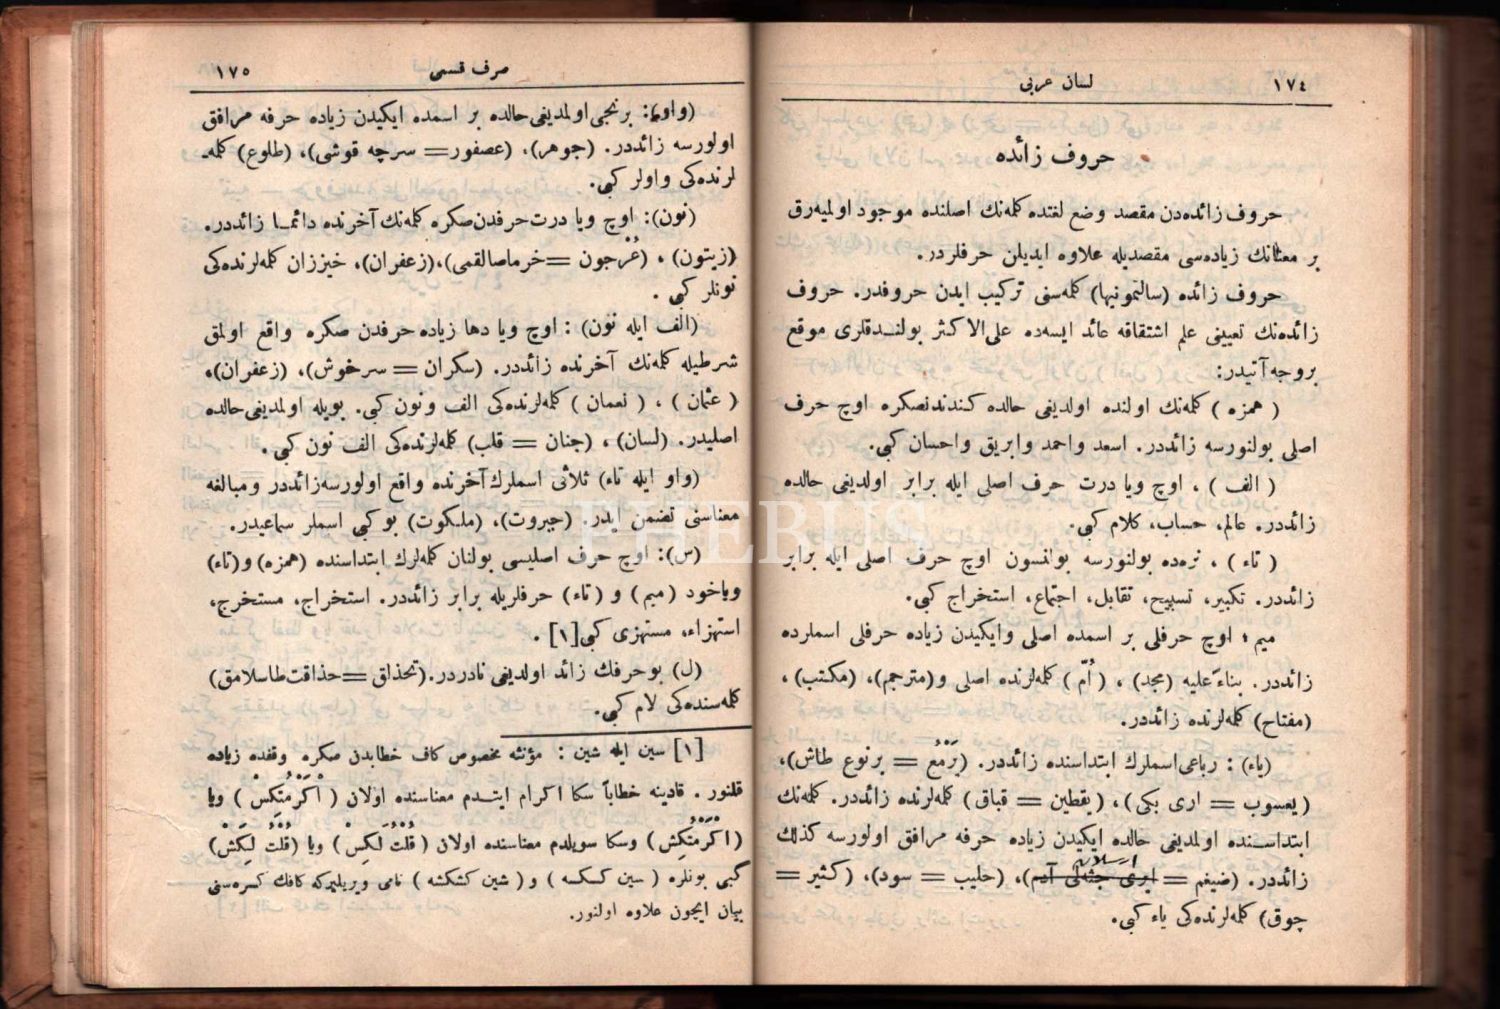 ١٧٤
لسان عربی
حروف زائده
حروف زائده‌دن مقصد وضع لغتده كلمه‌نك اصلنده موجود اولمیه‌رق
بر معنانك زیاده‌سی مقصدیله علاوه ایدیلن حرفلردر.
حروف زائده (سالتمونیها) كلمه‌سنی تركیب ایدن حروفدر. حروف
زائده‌نك تعیینی علم اشتقاقه عائد ایسه‌ده علی‌الاكثر بولنـدقلری موقع
بروجه آتیدر:
( همزه ) كلمه‌نك اولنده اولدیغی حالده كندندنصكره اوچ حرف
اصلی بولنورسه زائددر. اسعد واحمد وابریق واحسان كبی.
( الف ) ، اوچ ویا درت حرف اصلی ایله برابر اولدیغی حالده
زائددر. عالم، حساب، كلام كبی.
( تاء ) ، نره‌ده بولنورسه بولنسون اوچ حرف اصلی ایله برابر
زائددر. تكبیر، تسبیح، تقابل، اجتماع، استخراج كبی.
میم ؛ اوچ حرفلی بر اسمده اصلی وایكیدن زیاده حرفلی اسملرده
زائددر. بناءً علیه (مجد) ، ( اُمّ ) كلمه‌لرنده اصلی و(مترجم)، (مكتب) ،
(مفتاح) كلمه‌لرنده زائددر.
(یاء) : رباعی اسملرك ابتداسنده زائددر. (یَرْمَع = برنوع طاش)،
(یعسوب = اری بكی) ، (یقطین = قباق) كلمه‌لرنده زائددر. كلمه‌نك
ابتداسـنده اولمدیغی حالده ایكیدن زیاده حرفه مرافق اولورسه كذلك
ارسلان
زائددر. (ضیغم = ایری جثه‌لی آدم)، (حلیب = سود)، (كثیر =
چوق) كلمه‌لرنده‌كی یاء كبی.
صرف قسمی
١٧٥
(واو): برنجی اولمدیغی حالده بر اسمده ایكیدن زیاده حرفه مرافق
اولورسه زائددر. (جوهر)، (عصفور = سرچه قوشی)، (طلوع) كلمه‌ـ
لرنده‌كی واولر كبی.
(نون): اوچ ویا درت حرفدن صكره كلمه‌نك آخرنده دائمـا زائددر.
(زیتون) ، (عُرْجون = خرماصالقمی)،(زعفران)، خیزران كلمه‌لرنده‌كی
نونلر كبی .
(الف ایله نون) : اوچ ویا دها زیاده حرفدن صكره واقع اولمق
شرطیله كلمه‌نك آخرنده زائددر. (سكران = سرخوش)، (زعفران)،
( عثمان ) ، ( نعمان ) كلمه‌لرنده‌كی الف ونون كبی. بویله اولمدیغی حالده
اصلیدر. (لسان) ، (جنان = قلب) كلمه‌لرنده‌كی الف نون كبی .
(واو ایله تاء) ثلاثی اسملرك آخرنده واقع اولورسه زائددر ومبالغه
معناسنی تضمن ایدر. (جبروت)، (ملكوت) بو كبی اسملر سماعیدر.
(س): اوچ حرف اصلیسی بولنان كلمه‌لرك ابتداسنده (همزه) و(تاء)
ویاخود (میم) و (تاء) حرفلریله برابر زائددر. استخراج، مستخرج،
استهزاء، مستهزی كبی[١] .
(ل) بو حرفك زائد اولدیغی نادردر. (تحذلق = حذاقت‌طاسلامق)
كلمه‌سنده‌كی لام كبی.
[١] سین ایله شین : مؤنثه مخصوص كاف خطابدن صكره وقفده زیاده
قلنور . قادینه خطاباً سكا اكرام ایتـدم معناسنده اولان ( اَكْرَمْتُكِسْ ) ویا
( اَكْرَمْتُكِشْ ) وسكا سویلدم معناسنده اولان ( قُلْتُ لَكِسْ ) ویا (قُلْتُ لَكِشْ)
كبی بونلره ( سین كسكسه ) و ( شین كشكشه ) نامی ویریلیركه كافك كسره‌سنی
بیان ایچون علاوه اولنور.
PHEBUS